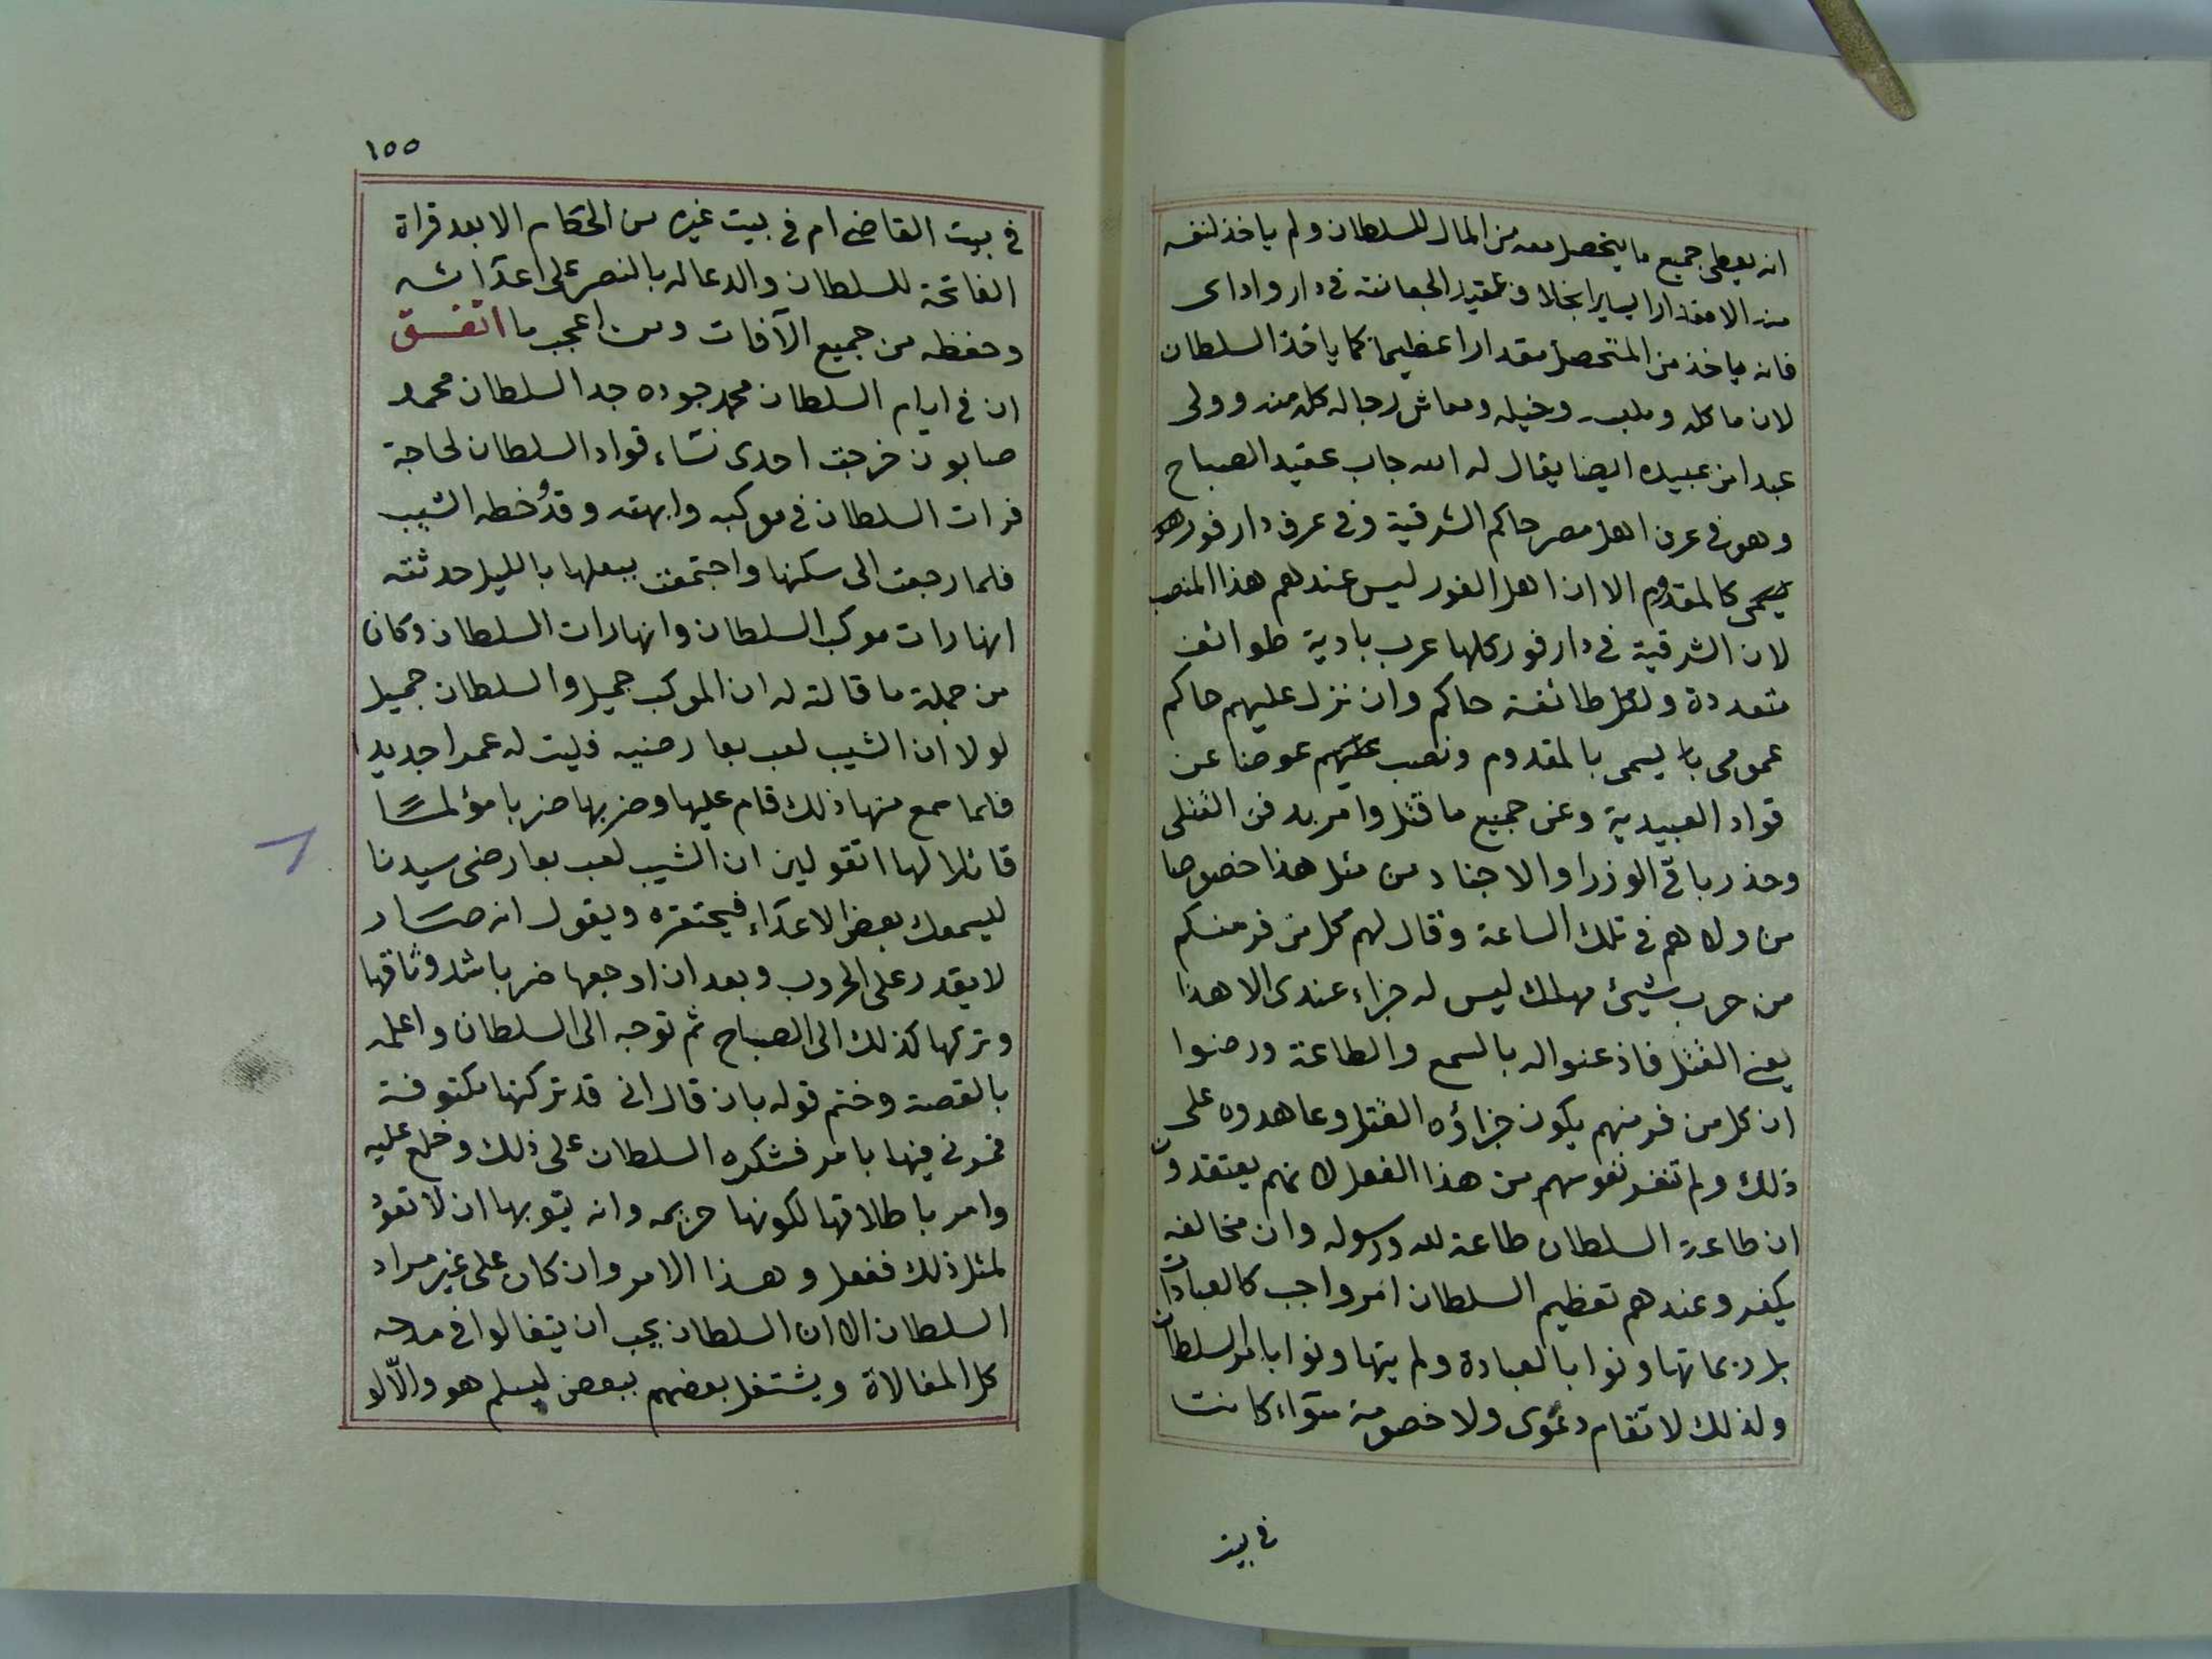 انه يعطى جميع ما يتحصل معه من المال للسلطان ولم ياخذ لنفسه
منه الا مقدارا يسيرا بخلاف عقيد الجعاتنه فى دار واداى
فانه ياخذ من المتحصل مقدارا عظيما كما ياخذ السلطان
لان ماكله وملبسه وخيله ومعاش رجاله كله منه وولى
عبدا من عبيده ايضا يقال له الله جاب عقيد الصباح
وهو فى عرف اهل مصر حاكم الشرقية وفى عرف دارفور هو
كالمقدوم الا ان اهل الفور ليس عندهم هذا المنصب
لان الشرقية فى دارفور كلها عرب بادية طوائف
متعددة ولكل طائفة حاكم وان نزل عليهم حاكم
عمومى يسمى بالمقدوم ونصب عليهم عوضا عن
قواد العبيدية وعن جميع ما قتل وامر بدفن القتلى
وحذر باقى الوزرا والاجناد من مثل هذا خصوصا
من ولاهم فى تلك الساعة وقال لهم كل من فر منكم
من حرب شيئ مهلك ليس له جزاء عندى الا هذا
يعنى القتل فاذعنوا له بالسمع والطاعة ورضوا
ان كل من فر منهم يكون جزاؤه القتل وعاهدوه على
ذلك ولم تنفر نفوسهم من هذا الفعل لانهم يعتقدون
ان طاعة السلطان طاعة لله ورسوله وان مخالفه
يكفر وعندهم تعظيم السلطان امر واجب كالعبادات
بل ربما تهاونوا بالعبادة ولم يتهاونوا بامر السلطان
ولذلك لا تقام دعوى ولا خصومة سواء كانت
فى بيت
١٥٥
فى بيت القاضى ام فى بيت غيره من الحكام الا بعد قراة
الفاتحة للسلطان والدعا له بالنصر على اعدائه
وحفظه من جميع الآفات ومن اعجب ما اتفق
ان فى ايام السلطان محمد جوده جد السلطان محمد
صابون خرجت احدى نساء قواد السلطان لحاجة
فرات السلطان فى موكبه وابهته وقد وخطه الشيب
فلما رجعت الى سكنها واجتمعت ببعلها بالليل حدثته
انها رات موكب السلطان وانها رات السلطان وكان
من جملة ما قالته له ان الموكب جميل والسلطان جميل
لولا ان الشيب لعب بعارضيه فليت له عمرا جديدا
فلما سمع منها ذلك قام عليها وضربها ضربا مؤلمًا
قائلا لها اتقولين ان الشيب لعب بعارضى سيدنا
ليسمعك بعض الاعداء فيحتقره ويقول انه صار
لا يقدر على الحروب وبعد ان اوجعها ضربا شد وثاقها
وتركها كذلك الى الصباح ثم توجه الى السلطان واعلمه
بالقصة وختم قوله بان قال انى قد تركتها مكتوفة
فمرنى فيها بامر فشكره السلطان على ذلك وخلع عليه
وامر باطلاقها لكونها حريمه وانه يتوبها ان لا تعود
لمثل ذلك ففعل وهذا الامر وان كان على غير مراد
السلطان الا ان السلطان يحب ان يتغالوا فى مدحه
كل المغالاة ويشتغل بعضهم ببعض ليسلم هو والّا لو